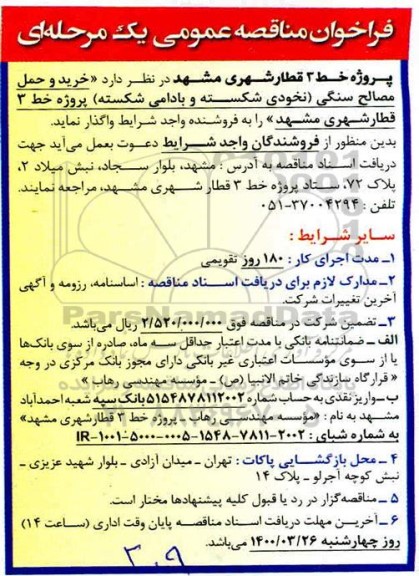 فراخوان مناقصه عمومی یک مرحله‌ای
پروژه خط ۳ قطارشهری مشهد در نظر دارد «خرید و حمل
مصالح سنگی (نخودی شکسته و بادامی شکسته) پروژه خط ۳
قطارشهری مشهد» را به فروشنده واجد شرایط واگذار نماید.
بدین منظور از فروشندگان واجد شرایط دعوت بعمل می‌آید جهت
دریافت اسناد مناقصه به آدرس : مشهد، بلوار سجاد، نبش میلاد ۲،
پلاک ۷۲، ستاد پروژه خط ۳ قطار شهری مشهد، مراجعه نمایند.
تلفن : ۳۷۰۰۴۲۹۴-۰۵۱
سایر شرایط :
۱ـ مدت اجرای کار : ۱۸۰ روز تقویمی
۲ـ مدارک لازم برای دریافت اسناد مناقصه : اساسنامه، رزومه و آگهی
آخرین تغییرات شرکت.
۳ـ تضمین شرکت در مناقصه فوق ۲/۵۲۰/۰۰۰/۰۰۰ ریال می‌باشد.
الف ـ ضمانتنامه بانکی با مدت اعتبار حداقل سه ماه، صادره از سوی بانک‌ها
یا از سوی مؤسسات اعتباری غیر بانکی دارای مجوز بانک مرکزی در وجه
« قرارگاه سازندگی خاتم الانبیا (ص) ـ مؤسسه مهندسی رهاب »
ب ـ واریز نقدی به حساب شماره ۵۱۵۴۸۷۸۱۱۲۰۰۲ بانک سپه شعبه احمدآباد
مشهد به نام : «مؤسسه مهندسی رهاب ـ پروژه خط ۳ قطارشهری مشهد»
به شماره شبای : IR-۱۰۰۱-۵۰۰۰-۰۰۰۵-۱۵۴۸-۷۸۱۱-۲۰۰۲
۴ـ محل بازگشایی پاکات : تهران ـ میدان آزادی ـ بلوار شهید عزیزی ـ
نبش کوچه آجرلو ـ پلاک ۱۴
۵ ـ مناقصه‌گزار در رد یا قبول کلیه پیشنهادها مختار است.
۶ ـ آخرین مهلت دریافت اسناد مناقصه پایان وقت اداری (ساعت ۱۴)
روز چهارشنبه ۱۴۰۰/۰۳/۲۶ می‌باشد.
۳۰۹
ParsNamadData